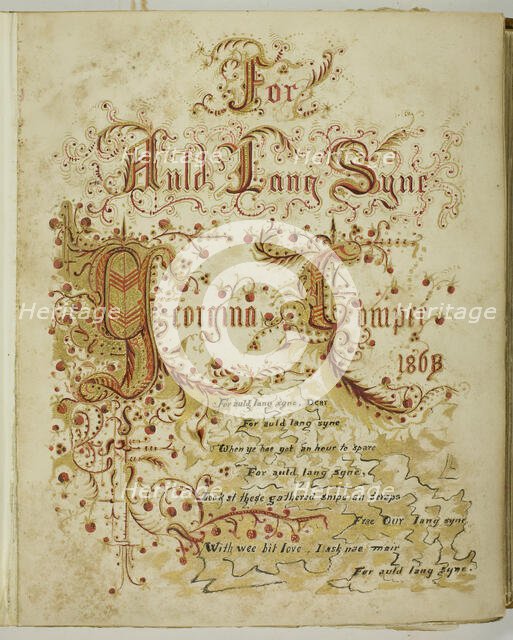 For
Auld Lang Syne
Georgina
1868
For auld lang syne, Dear
For auld lang syne
When ye hae got an hour to spare
For auld lang syne.
Look at these gathered snips an scraps
Frae Our lang syne
With wee bit love, I ask nae mair
For auld lang syne.
Heritage Heritage Heritage
Heritage Heritage Heritage
Heritage Heritage Heritage